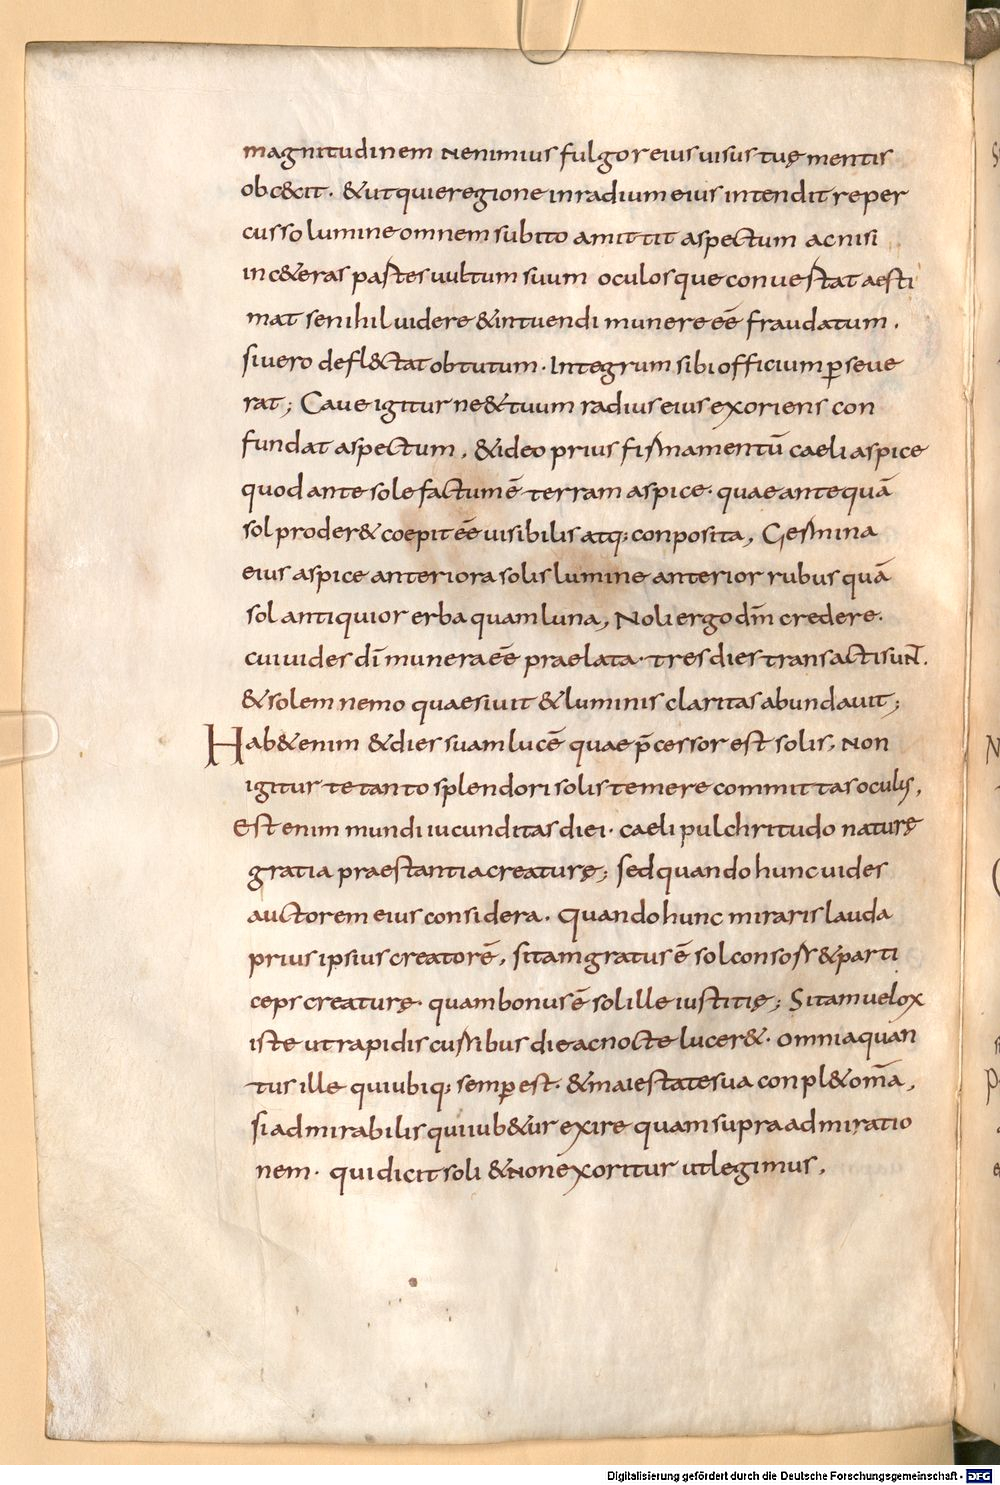 magnitudinem nenimius fulgoreius uisus tuę mentis
obc&cit. &utquieregione inradiumeius intendit reper
cusso lumine omnem subito amittit aspectum acnisi
inc&eras partes uultum suum oculosque conuertat aesti
mat senihil uidere &intuendi munere eē fraudatum.
siuero defl&ctat obtutum. Integrum sibi officium pseue
rat; Caue igitur ne&tuum radius eius exoriens con
fundat aspectum, &ideo prius firmamentū caeli aspice
quod ante sole factumē terram aspice. quae antequā
sol proder& coepit eē uisibilis atq; conposita, Germina
eius aspice anteriora solis lumine anterior rubus quā
sol antiquior erba quam luna, Noli ergo dm̄ credere.
cui uides dī munera eē praelata. tres dies transactisuNT.
&solem nemo quaesiuit &luminis claritas abundauit;
Hab&enim &dies suam lucē quae p̄cessor est solis, Non
igitur te tanto splendori solis temere committas oculis,
Est enim mundi iucunditas diei. caeli pulchritudo naturę
gratia praestantia creaturę; sed quando hunc uides
auctorem eius considera. Quando hunc miraris lauda
prius ipsius creatorē, sitam gratus ē sol consors &parti
ceps creaturę. quam bonus ē sol ille iustitię; Si tam uelox
iste ut rapidis cursibus die ac nocte lucer&. omnia quan
tus ille qui ubiq; semp est. &maiestate sua conpl& om̄a,
si admirabilis qui iub&ur exire quam supra admiratio
nem. qui dicit soli &non exoritur ut legimus,
Digitalisierung gefördert durch die Deutsche Forschungsgemeinschaft - DFG